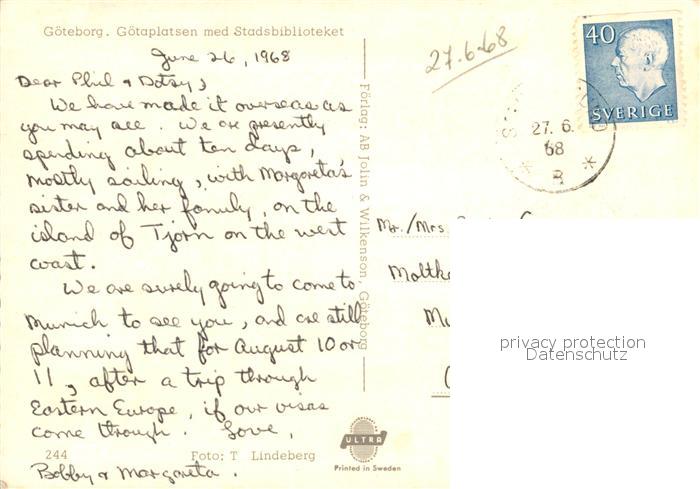 Göteborg. Götaplatsen med Stadsbiblioteket
June 26, 1968
Dear Phil & Dotsy,
We have made it overseas as
you may see. We are presently
spending about ten days,
mostly sailing, with Margareta's
sister and her family, on the
island of Tjörn on the west
coast.
We are surely going to come to
Munich to see you, and are still
planning that for August 10 or
11, after a trip through
Eastern Europe, if our visas
come through. Love,
Bobby & Margareta.
244 Foto: T Lindeberg
Förlag: AB Jolin & Wilkenson Göteborg
ULTRA
Printed in Sweden
27.6.68
40
SVERIGE
27. 6.
68
Mr./Mrs
privacy protection
Datenschutz